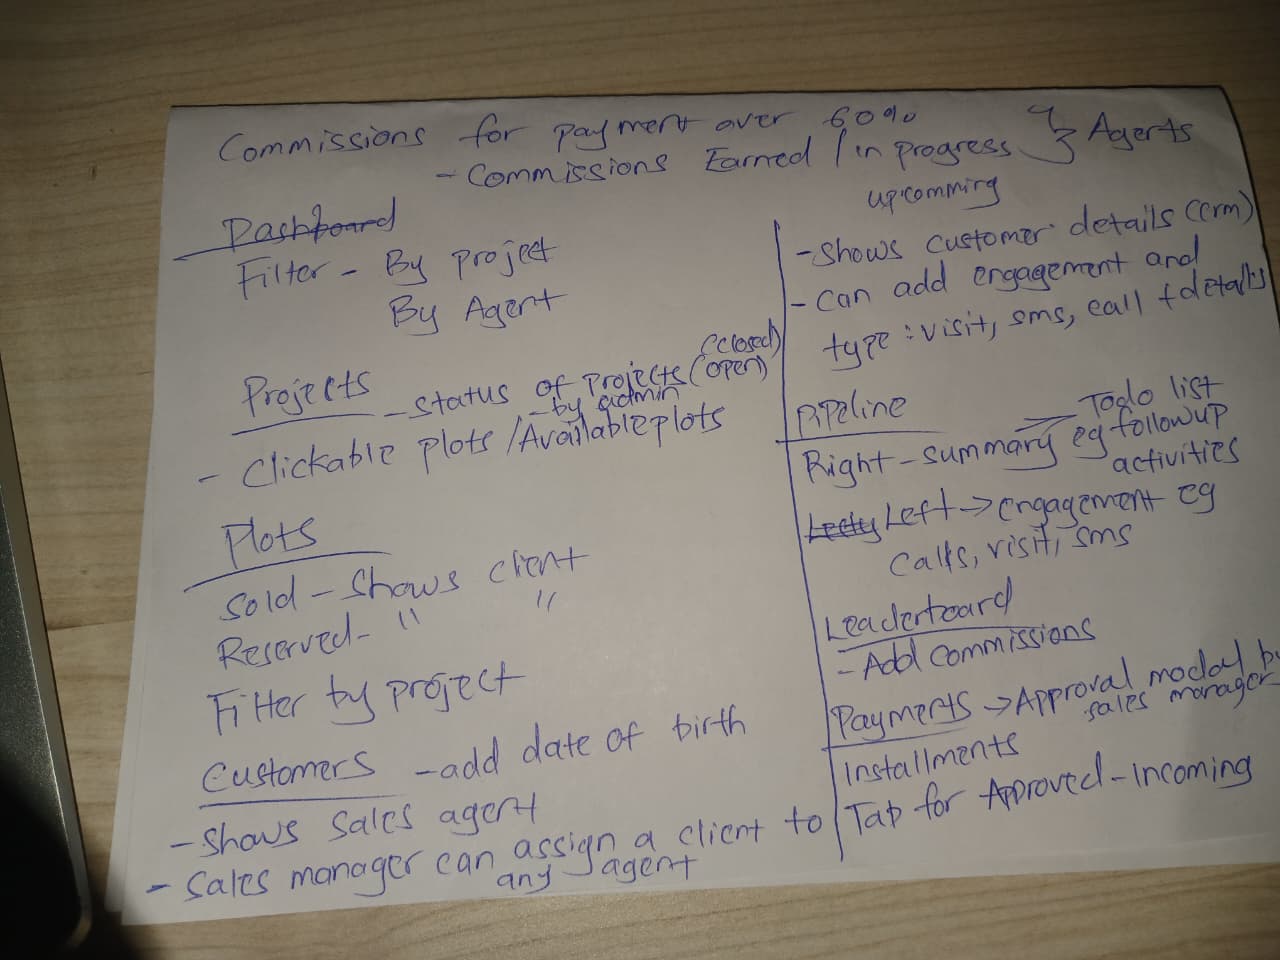 Commissions for payment over 60%
- Commissions Earned / in progress } Agents
upcomming
Dashboard
Filter - By project
By Agent
Projects - status of projects (open)
(closed)
- by admin
- Clickable plots / Available plots
Plots
Sold - Shows client
Reserved - " "
Filter by project
Customers - add date of birth
- Shows sales agent
- Sales manager can assign a client to
any agent
- Shows customer details (crm)
- Can add engagement and
type : visit, sms, call + details
Pipeline
Todo list
Right - summary eg followup
activities
Left -> engagement eg
calls, visit, sms
Leaderboard
- Add commissions
Payments -> Approval modal by
sales manager
Installments
Tab for Approved - Incoming